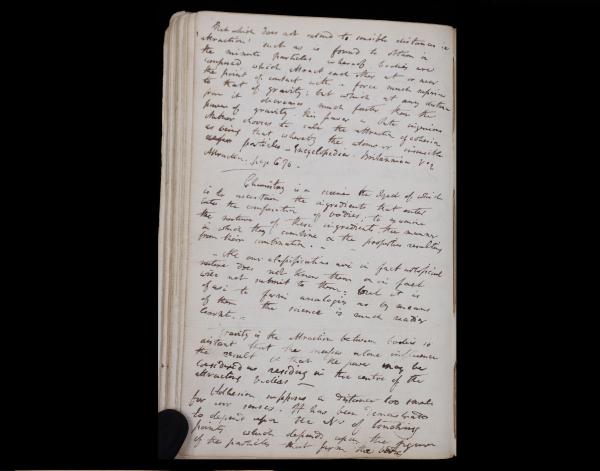 But which does not extend to sensible distances is
Attraction: such as is found to obtain in
the minute particles whereof bodies are
composed which Attract each other at or near
the point of contact with a force much superior
to that of gravity; but which at any distance
from it decreases much faster than the
power of gravity this power a late ingenious
Author chooses to call the Attraction of cohesion
as being that whereby the atoms or insensible
particles - Encyclopedia Britannica V 2
Attraction page 670 -
Chemistry is a science the object of which
is to ascertain the ingredients that enter
into the composition of bodies, to examine
the nature of these ingredients the manner
in which they combine & the properties resulting
from their combination. -
All our classifications are in fact artificial
nature does not know them or in fact
will not submit to them; but it is
of use to form analogies as by means
of them the science is much readier
learnt. -
Gravity is the Attraction between bodies so
distant that the masses alone influence
the result so that the power may be
Considered as residing in the centre of the
attracting bodies -
Adhesion supposes a distance too small
for our senses. It has been demonstrated
to depend upon the No of touching
points which depends upon the figure
of the particles that form the bodies